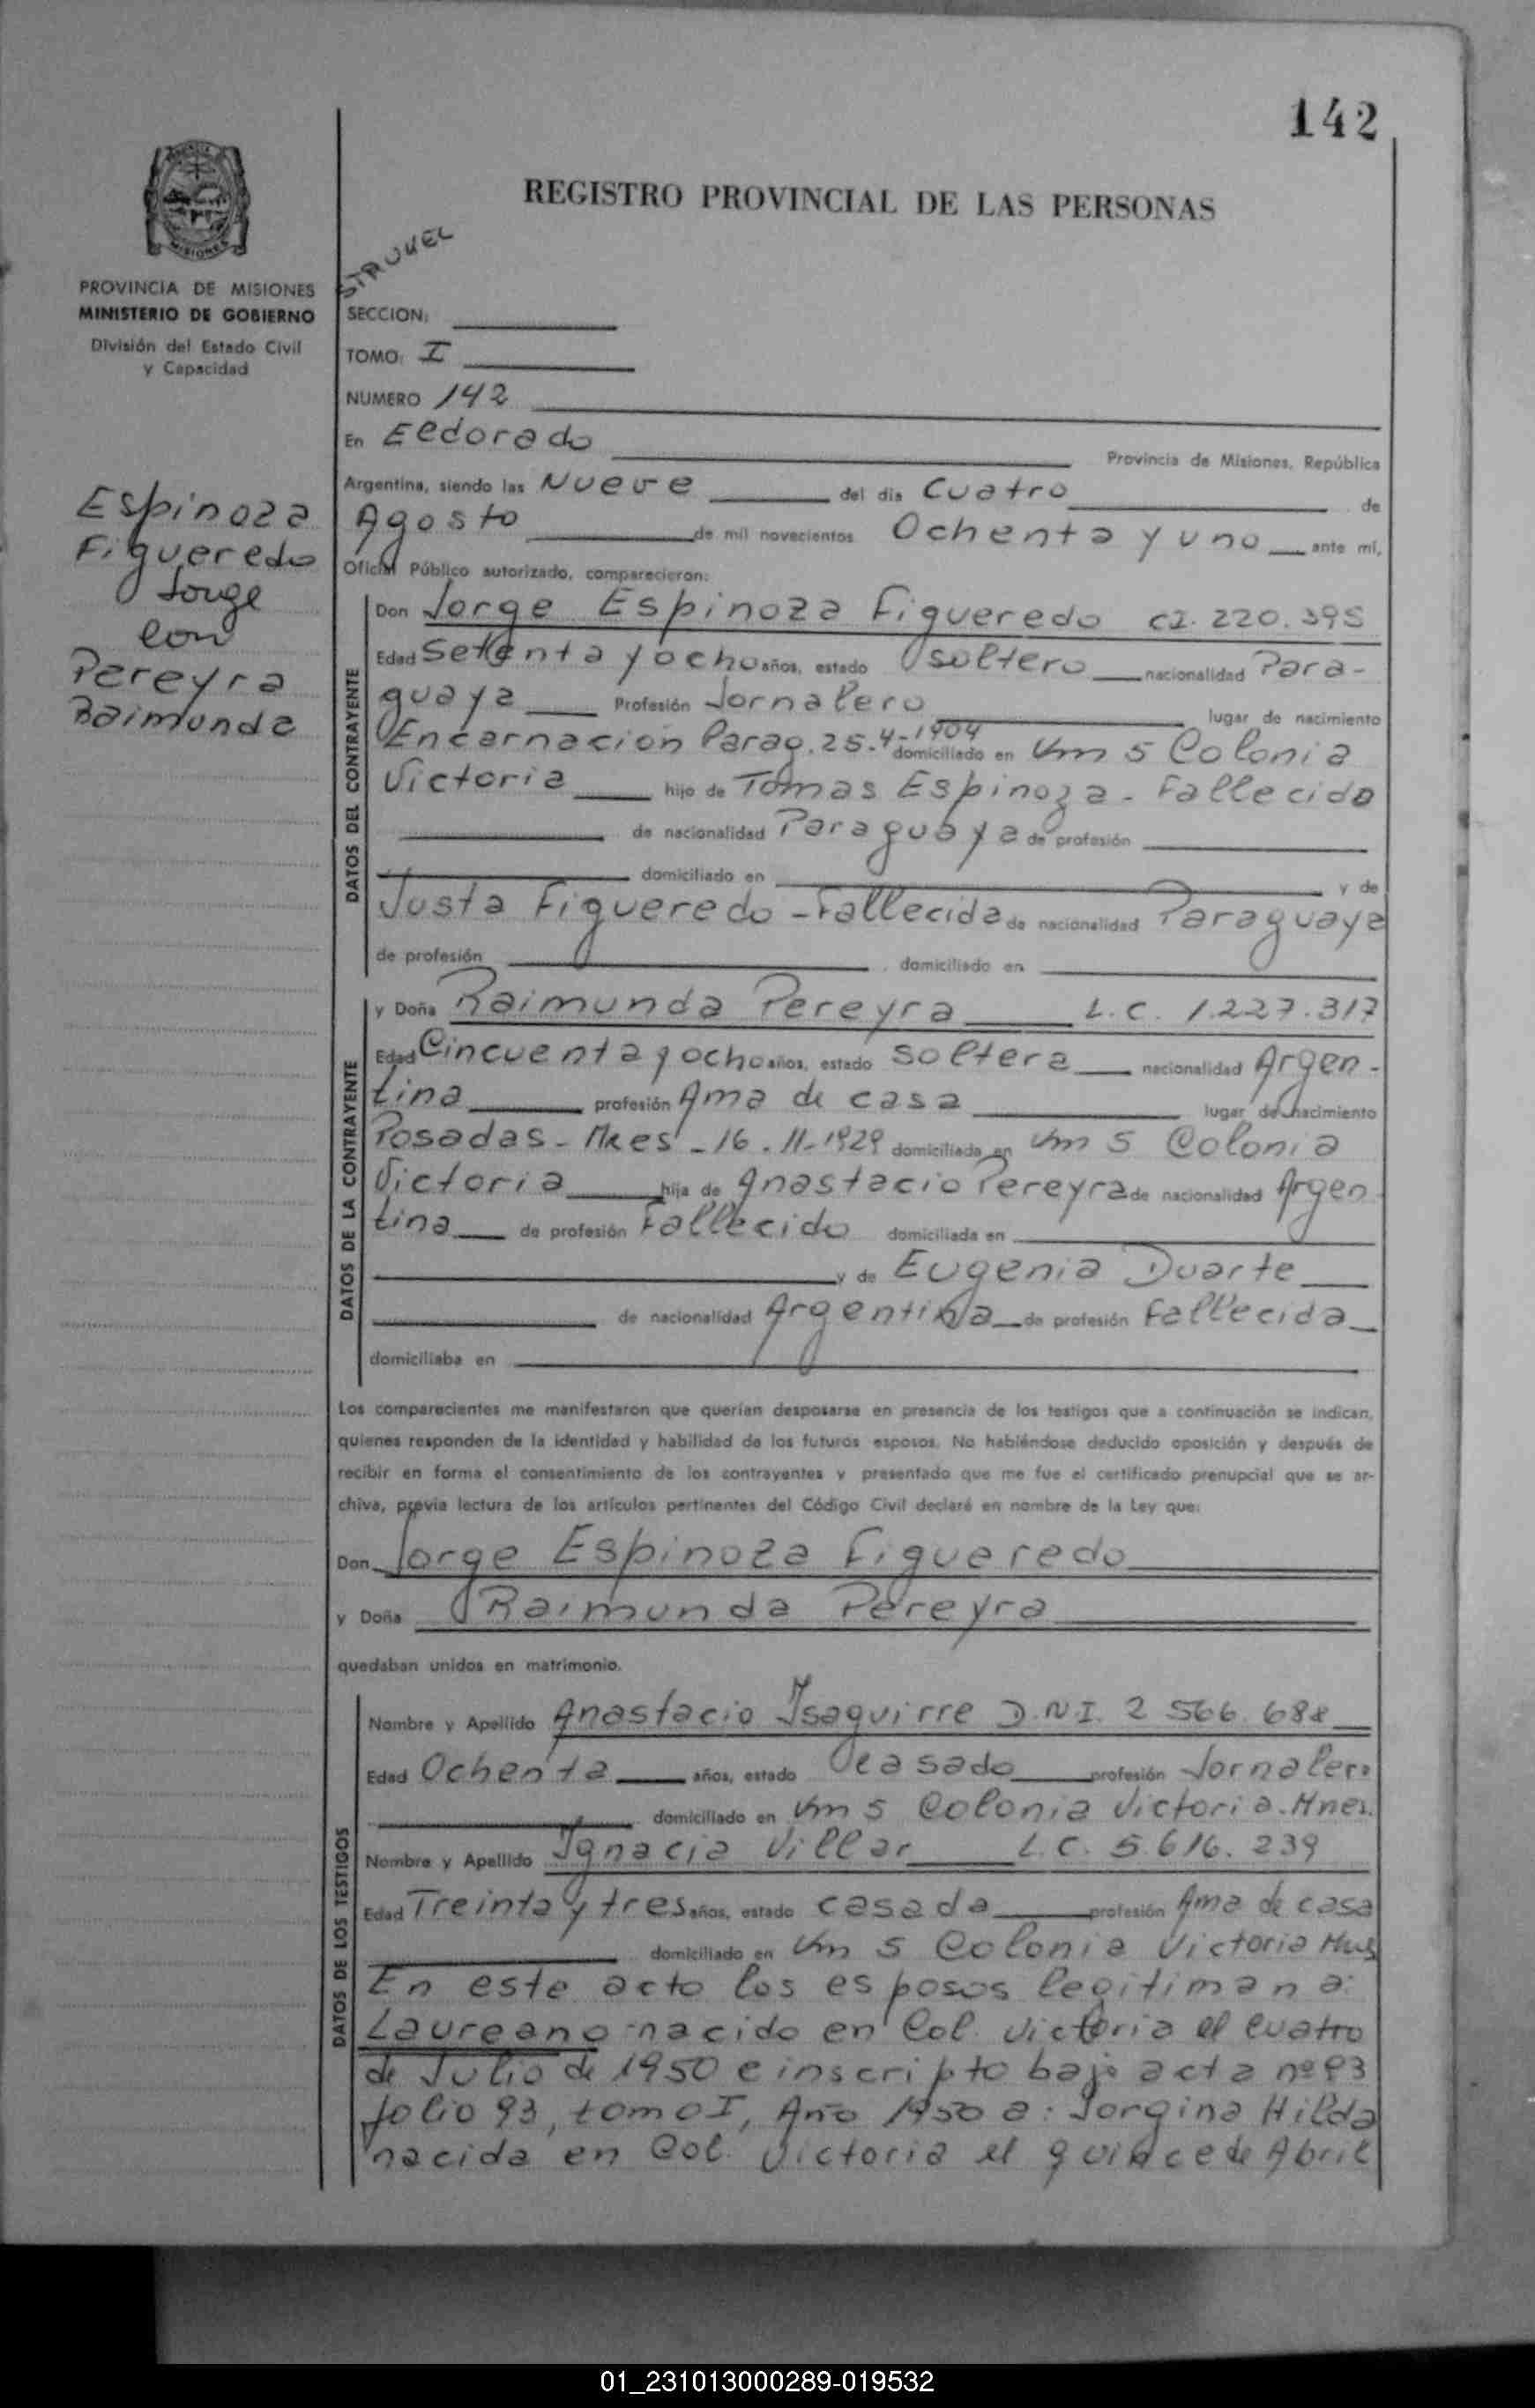 142
REGISTRO PROVINCIAL DE LAS PERSONAS
MISIONES
PROVINCIA DE MISIONES
MINISTERIO DE GOBIERNO
División del Estado Civil
y Capacidad
SECCION:
TOMO: I
NUMERO 142
En Eldorado Provincia de Misiones, República
Argentina, siendo las Nueve del día Cuatro de
Agosto de mil novecientos Ochenta y uno ante mí,
Oficial Público autorizado, comparecieron:
Espinoza
Figueredo
Jorge
con
Pereyra
Raimunda
DATOS DEL CONTRAYENTE
Don Jorge Espinoza Figueredo CI. 220.395
Edad Setenta y ocho años, estado soltero nacionalidad Para-
guaya Profesión Jornalero lugar de nacimiento
Encarnación Parag. 25-4-1904 domiciliado en Km 5 Colonia
Victoria hijo de Tomas Espinoza - Fallecido
de nacionalidad Paraguaya de profesión
domiciliado en y de
Justa Figueredo - Fallecida de nacionalidad Paraguaya
de profesión domiciliado en
DATOS DE LA CONTRAYENTE
y Doña Raimunda Pereyra L.C. 1.227.317
Edad Cincuenta y ocho años, estado soltera nacionalidad Argen-
tina profesión Ama de casa lugar de nacimiento
Posadas - - 16-11-1929 domiciliada en Km 5 Colonia
Victoria hija de Anastacio Pereyra de nacionalidad Argen
tina de profesión Fallecido domiciliada en
y de Eugenia Duarte
de nacionalidad Argentina de profesión Fallecida
domiciliaba en
Los comparecientes me manifestaron que querían desposarse en presencia de los testigos que a continuación se indican,
quienes responden de la identidad y habilidad de los futuros esposos. No habiéndose deducido oposición y después de
recibir en forma el consentimiento de los contrayentes y presentado que me fue el certificado prenupcial que se ar-
chiva, previa lectura de los artículos pertinentes del Código Civil declaré en nombre de la Ley que:
Don Jorge Espinoza Figueredo
y Doña Raimunda Pereyra
quedaban unidos en matrimonio.
DATOS DE LOS TESTIGOS
Nombre y Apellido Anastacio Isaguirre D.N.I. 2 566.688
Edad Ochenta años, estado casado profesión Jornalero
domiciliado en Km 5 Colonia Victoria. Mnes.
Nombre y Apellido Ignacia Villar L.C. 5.616.239
Edad Treinta y tres años, estado casada profesión Ama de casa
domiciliado en Km 5 Colonia Victoria Mns
En este acto los esposos legitiman a:
Laureano nacido en Col. Victoria el cuatro
de Julio de 1950 e inscripto bajo acta nº 93
folio 93, tomo I, Año 1950 a: Jorgina Hilda
nacida en Col. Victoria el quince de Abril
01_231013000289-019532